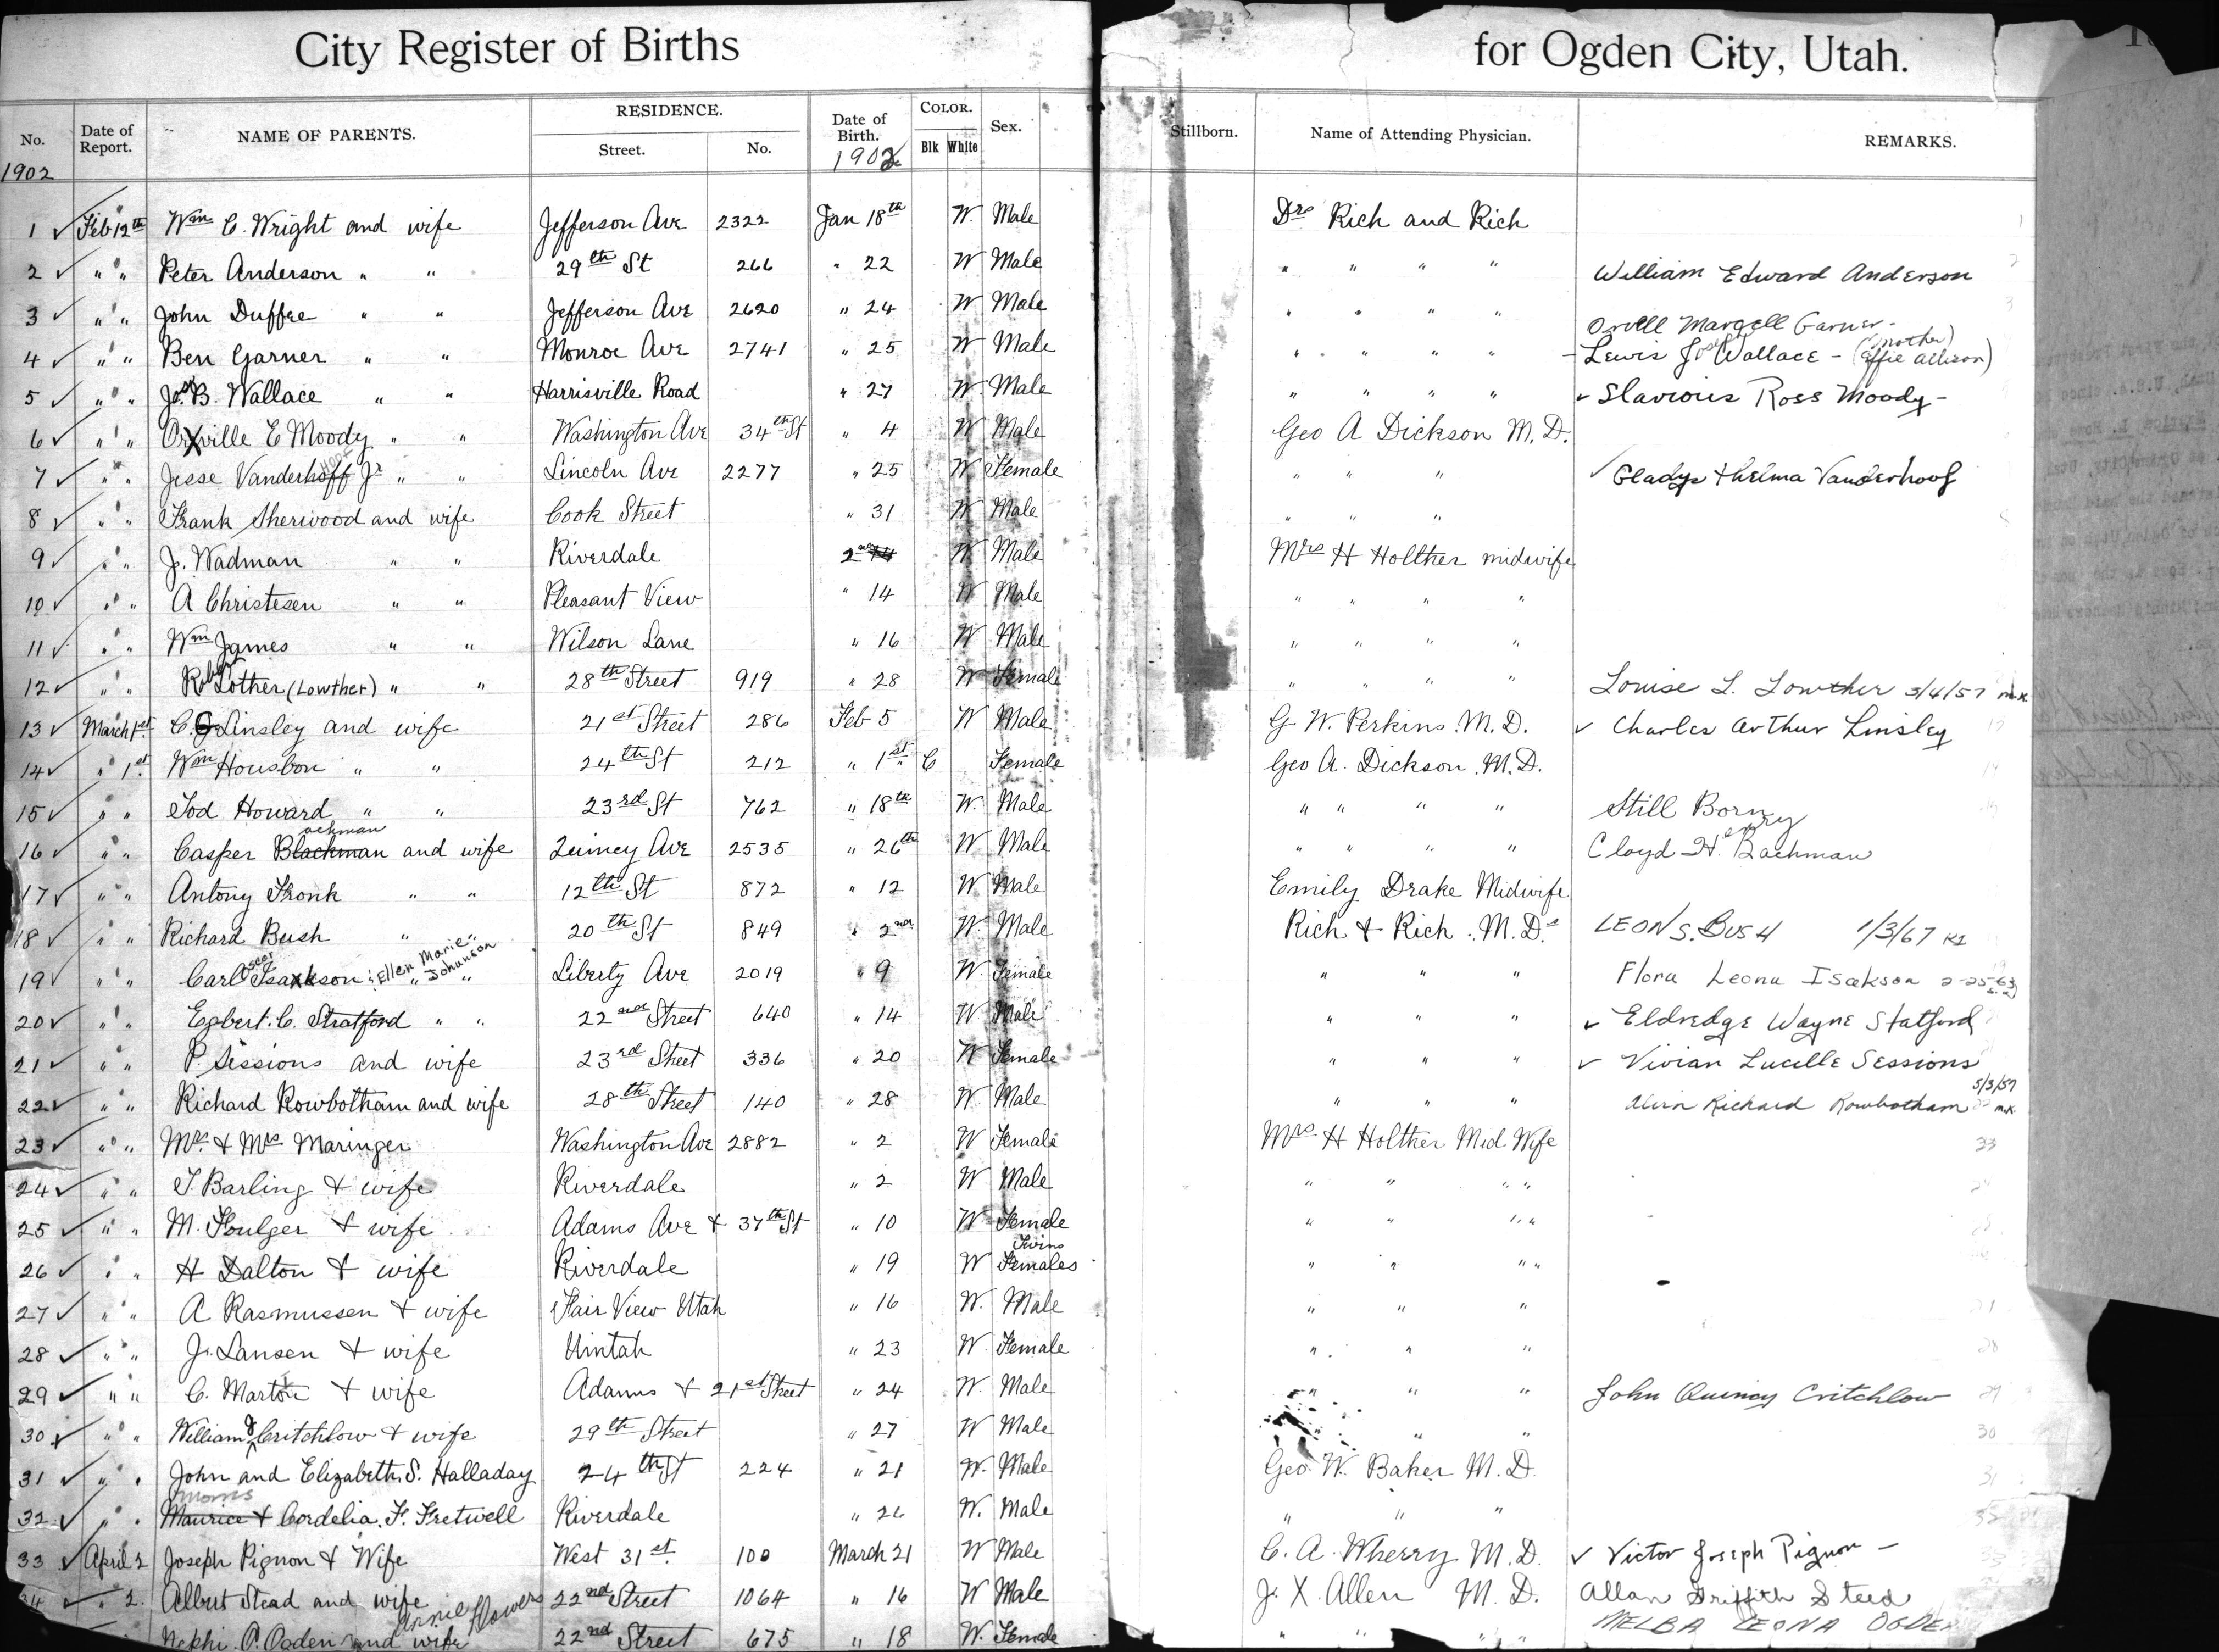 City Register of Births for Ogden City, Utah.
No. Date of Report. NAME OF PARENTS. RESIDENCE. Street. No. Date of Birth. COLOR. Blk White Sex. Stillborn. Name of Attending Physician. REMARKS.
1902 1902
1 Feb 12th Wm C. Wright and wife Jefferson Ave 2322 Jan 18th W. Male Drs Rich and Rich
2 " " Peter Anderson " " 29th St 266 " 22 W Male " " " " William Edward Anderson
3 " " John Duffee " " Jefferson Ave 2620 " 24 W Male " " " "
Orvell Margell Garner -
4 " " Ben Garner " " Monroe Ave 2741 " 25 W Male " " " " - Lewis Joseph Wallace - (mother Effie Allison)
5 " " Jos. B. Wallace " " Harrisville Road " 27 W Male " " " " Slavious Ross Moody -
6 " " Orville E Moody " " Washington Ave 34th St " 4 W Male Geo A Dickson M.D.
7 " " Jesse Vanderhoff Jr " " Lincoln Ave 2277 " 25 W Female " " " Gladys Thelma Vanderhoof
8 " " Frank Sherwood and wife Cook Street " 31 W Male " " "
9 " " J. Wadman " " Riverdale 2nd W Male Mrs H Holther midwife
10 " " A Christesen " " Pleasant View " 14 W Male " " " "
11 " " Wm James " " Wilson Lane " 16 W Male " " " "
12 " " Robert Lother (Lowther) " " 28th Street 919 " 28 W Female " " " " Louise L. Lowther 3/4/57 m.k.
13 March 1st C. G Linsley and wife 21st Street 286 Feb 5 W Male G. W. Perkins M.D. Charles Arthur Linsley
14 " 1st Wm Housbon " " 24th St 212 " 1st C Female Geo A. Dickson M.D.
15 " " Tod Howard " " 23rd St 762 " 18th W. Male " " " " Still Born
16 " " Casper Blackman achman and wife Quincy Ave 2535 " 26th W Male " " " " Cloyd Henry Bachman
17 " " Antony Fronk " " 12th St 872 " 12 W Male Emily Drake Midwife
18 " " Richard Bush " " 20th St 849 " 2nd W. Male Rich & Rich M.Ds. LEON S. BUSH 1/3/67
19 " " Carl Oscar Isakson : Ellen Marie Johanson " " Liberty Ave 2019 " 9 W. Female " " " Flora Leona Isakson 2-25-63
20 " " Egbert. C. Stratford " " 22nd Street 640 " 14 W Male " " " Eldredge Wayne Statford
21 " " P. Sessions and wife 23rd Street 336 " 20 W Female " " " Vivian Lucille Sessions
22 " " Richard Rowbotham and wife 28th Street 140 " 28 W Male " " " Richard Rowbotham 5/3/57 m.k.
23 " " Mr. & Mrs Maringer Washington Ave 2882 " 2 W Female Mrs. H Holther Mid Wife
24 " " T. Barling & wife Riverdale " 2 W Male " " " "
25 " " M. Foulger & wife Adams Ave & 37th St " 10 W Female " " " "
26 " " H Dalton & wife Riverdale " 19 W Twins Females " " " "
27 " " A Rasmussen & wife Fair View Utah " 16 W. Male " " "
28 " " J. Lansen & wife Uintah " 23 W Female " " "
29 " " C. Marton & wife Adams & 21st Street " 24 W. Male " " " John Quincy Critchlow
30 " " William J Critchlow & wife 29th Street " 27 W Male " "
31 " " John and Elizabeth. S. Halladay 24th St 224 " 21 W. Male Geo. W. Baker M.D.
32 " " Morris Maurice & Cordelia. F. Fretwell Riverdale " 26 W. Male " " "
33 April 2 Joseph Pignon & Wife West 31st. 100 March 21 W Male C. A. Wherry M.D. Victor Joseph Pignon -
34 " 2. Albert Stead and wife 22nd Street 1064 " 16 W Male J. X. Allen M.D. Allan Griffith Steed
Nephi P. Ogden and wife Annie Flowers 22nd Street 675 " 18 W. Female " " " " MELBA LEONA OGDEN